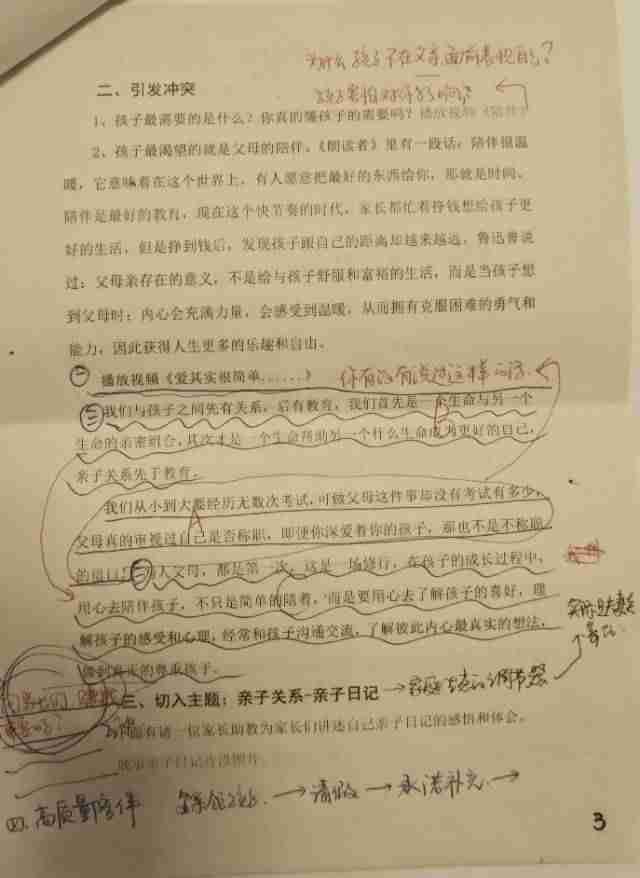 为什么孩子不在父亲面前表现自己？
二、引发冲突
1、孩子最需要的是什么？你真的懂孩子的需要吗？播放视频《陪伴》
2、孩子最渴望的就是父母的陪伴。《朗读者》里有一段话，陪伴很温
暖，它意味着在这个世界上，有人愿意把最好的东西给你，那就是时间。
陪伴是最好的教育，现在这个快节奏的时代，家长都忙着挣钱想给孩子更
好的生活，但是挣到钱后，发现孩子跟自己的距离却越来越远。鲁迅曾说
过：父母亲存在的意义，不是给与孩子舒服和富裕的生活，而是当孩子想
到父母时：内心会充满力量，会感受到温暖，从而拥有克服困难的勇气和
能力，因此获得人生更多的乐趣和自由。
㊀ 播放视频《爱其实很简单……》 你有没有说过这样的话
㊁ 我们与孩子之间先有关系，后有教育，我们首先是一个生命与另一个
生命的亲密组合，其次才是一个生命帮助另一个什么生命成为更好的自己，
亲子关系先于教育。
B
我们从小到大要经历无数次考试，可做父母这件事却没有考试有多少
父母真的审视过自己是否称职，即便你深爱着你的孩子，那也不是不称职
A
的借口！人父母，都是第一次，这是一场修行，在孩子的成长过程中，
用心去陪伴孩子，不只是简单的陪着，而是要用心去了解孩子的喜好，理
解孩子的感受和心理，经常和孩子沟通交流，了解彼此内心最真实的想法，
做到真正的尊重孩子。
三、切入主题：亲子关系-亲子日记 →家庭 的调节器
面有请一位家长助教为家长们讲述自己亲子日记的感悟和体会。
故事亲子日记片段照片
㊃、高质量陪伴 →请假→承诺补充→
3